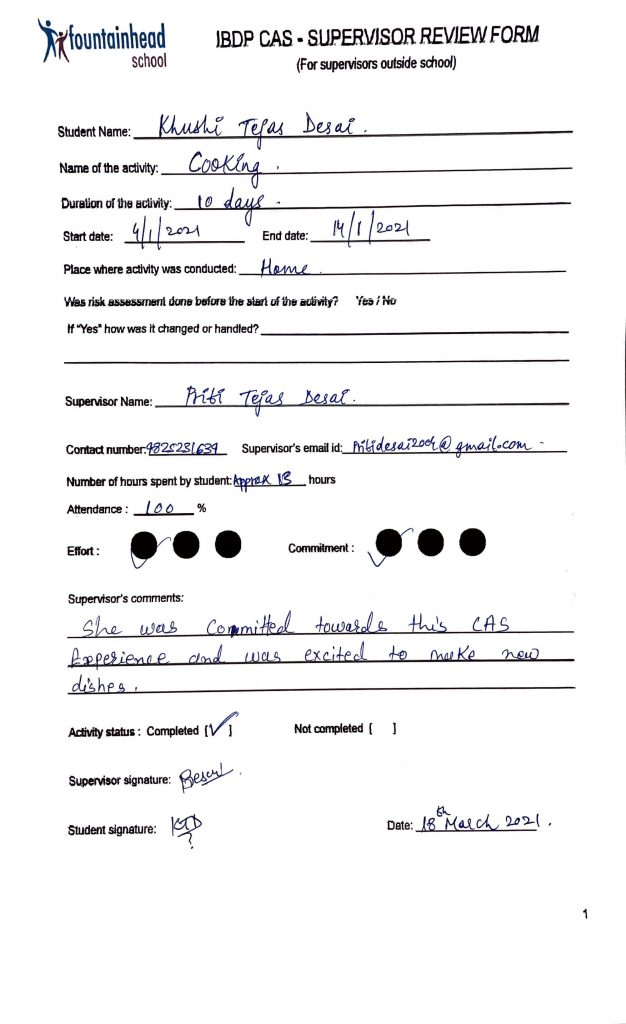 fountainhead
school
IBDP CAS - SUPERVISOR REVIEW FORM
(For supervisors outside school)
Student Name: Khushi Tejas Desai.
Name of the activity: Cooking.
Duration of the activity: 10 days.
Start date: 4/1/2021 End date: 14/1/2021
Place where activity was conducted: Home.
Was risk assessment done before the start of the activity? Yes / No
If "Yes" how was it changed or handled?
Supervisor Name: Priti Tejas Desai.
Contact number: 9825231639 Supervisor's email id: Pritidesai2004@gmail.com
Number of hours spent by student: Approx 13 hours
Attendance : 100 %
Effort : Commitment :
Supervisor's comments:
She was Committed towards this CAS
Experience and was excited to make new
dishes.
Activity status : Completed [✓] Not completed [ ]
Supervisor signature:
Student signature: KTD
Date: 18th March 2021.
1